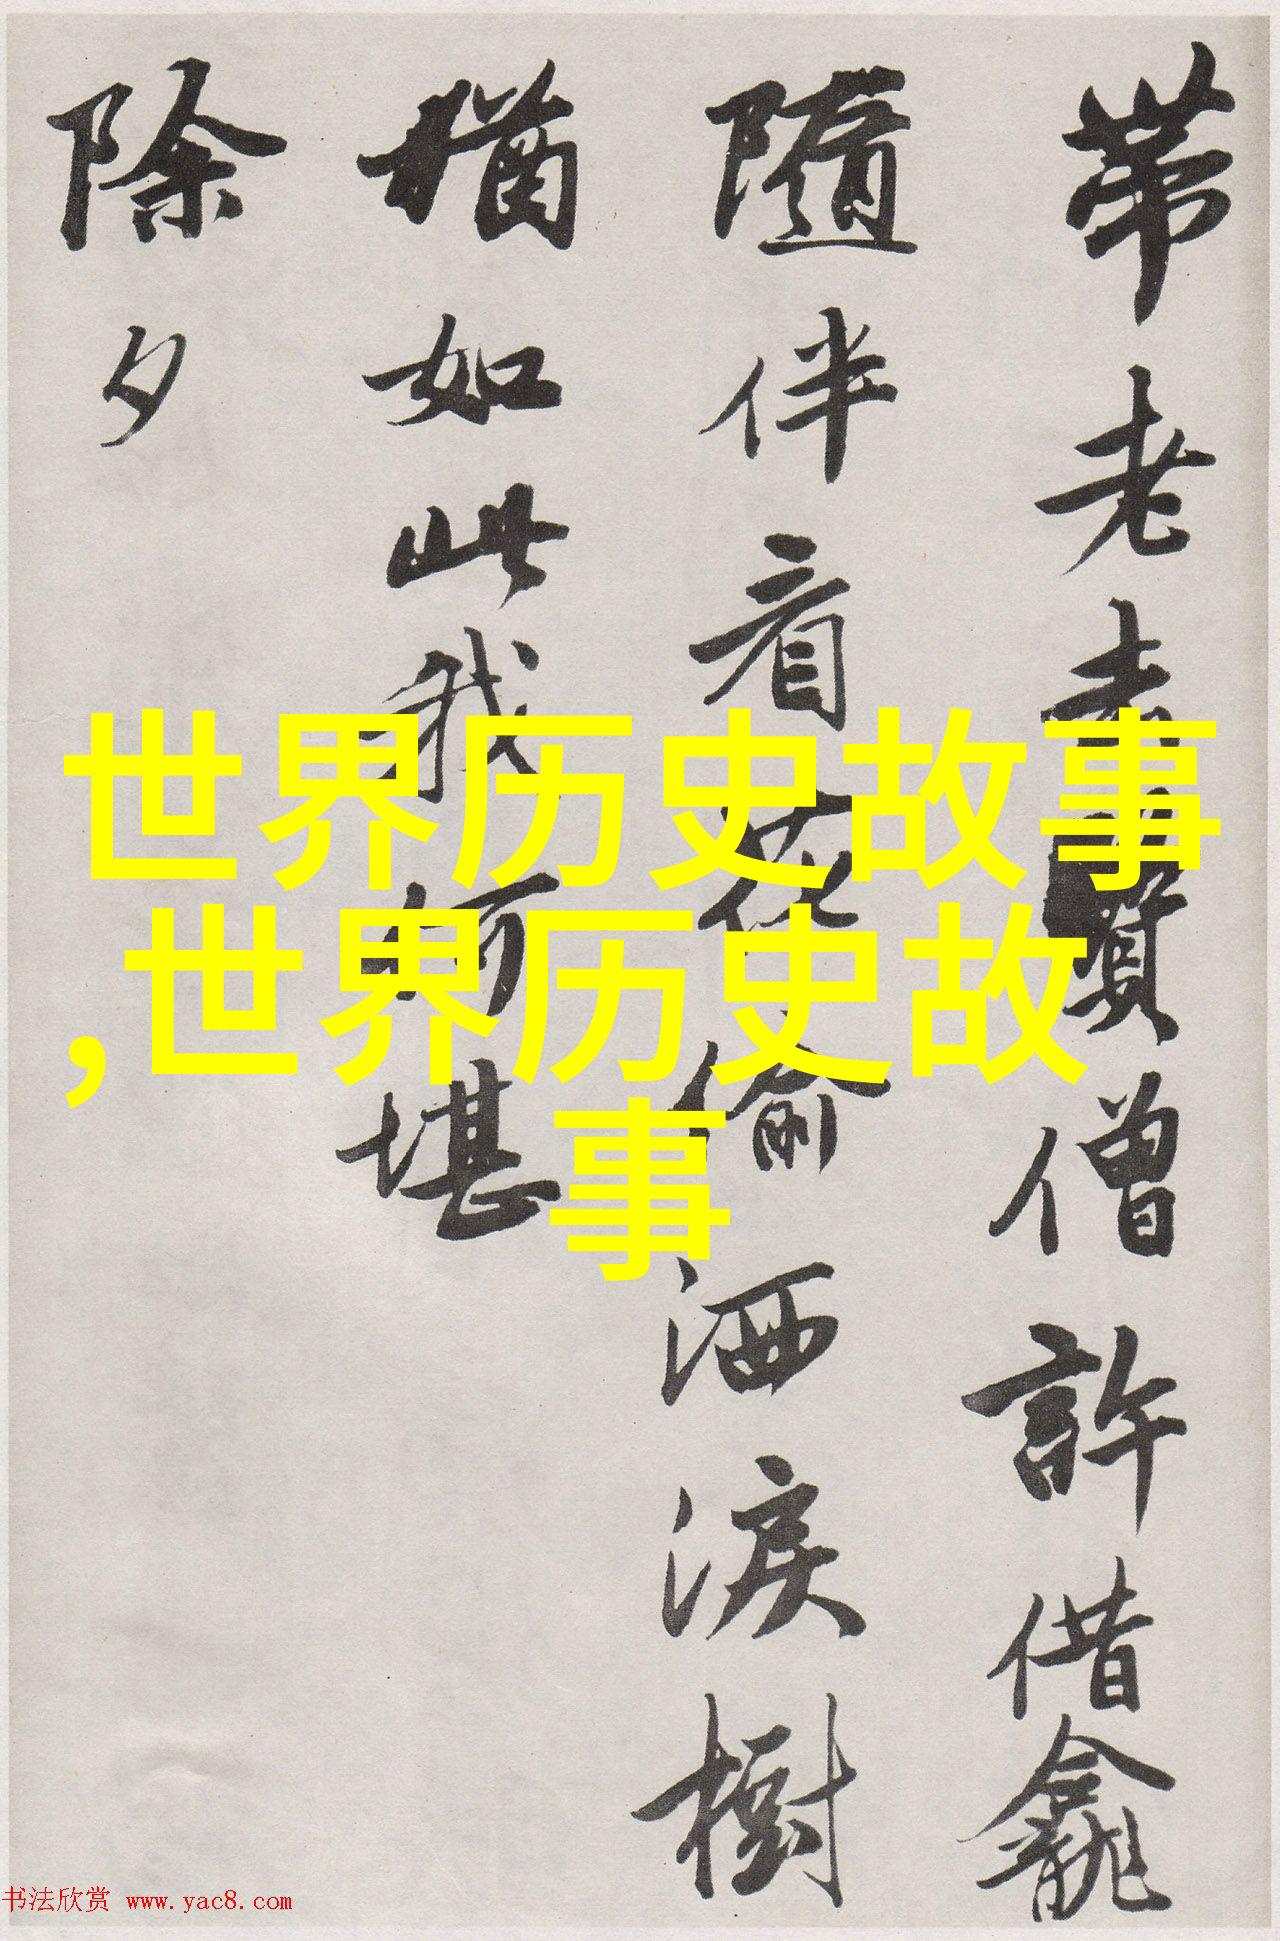 帶老僧許借龕
隨伴看花偷洒淚樹
猶如此我何堪
除夕
世界历史故事
,世界历史故
事
书法欣赏 www.yac8.com